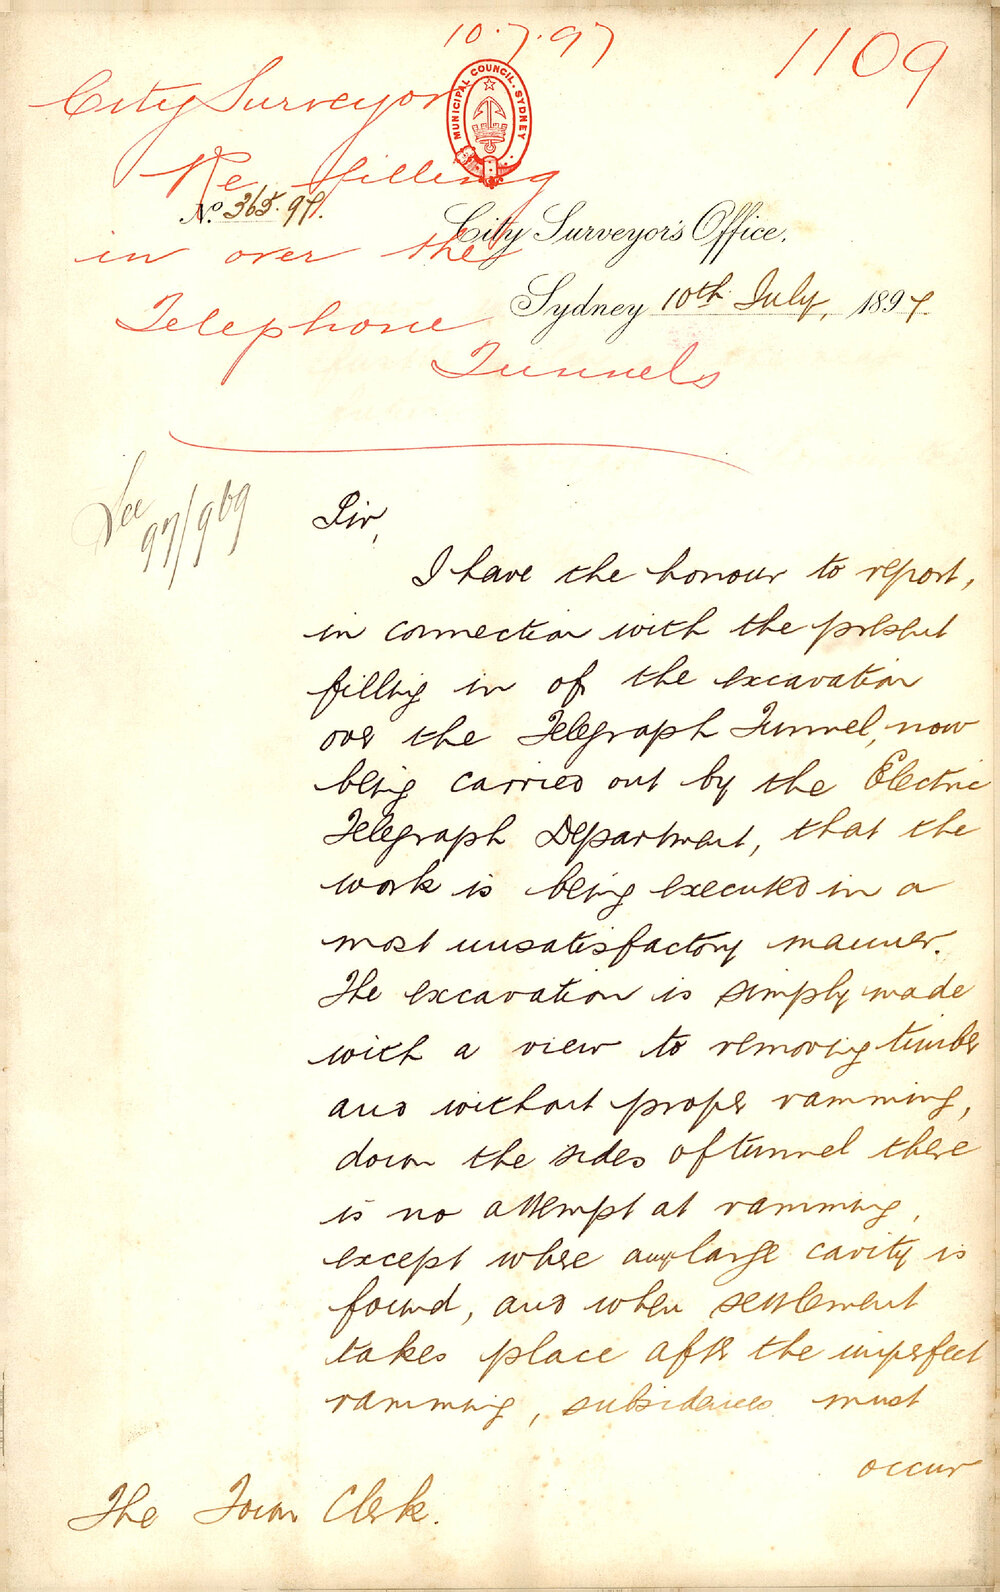 10.7.97
1109
City Surveyor
MUNICIPAL COUNCIL. SYDNEY
Re filling
No. 365.97.
City Surveyor's Office.
in over the
Sydney 10th July, 1897
Telephone
Tunnels
See
97/969
Sir,
I have the honour to report,
in connection with the present
filling in of the excavation
over the Telegraph Tunnel, now
being carried out by the Electric
Telegraph Department, that the
work is being executed in a
most unsatisfactory manner.
The excavation is simply made
with a view to removing timber
and without proper ramming,
down the sides of tunnel there
is no attempt at ramming,
except where any large cavity is
found, and when settlement
takes place after the imperfect
ramming, subsidences must
occur
The Town Clerk.